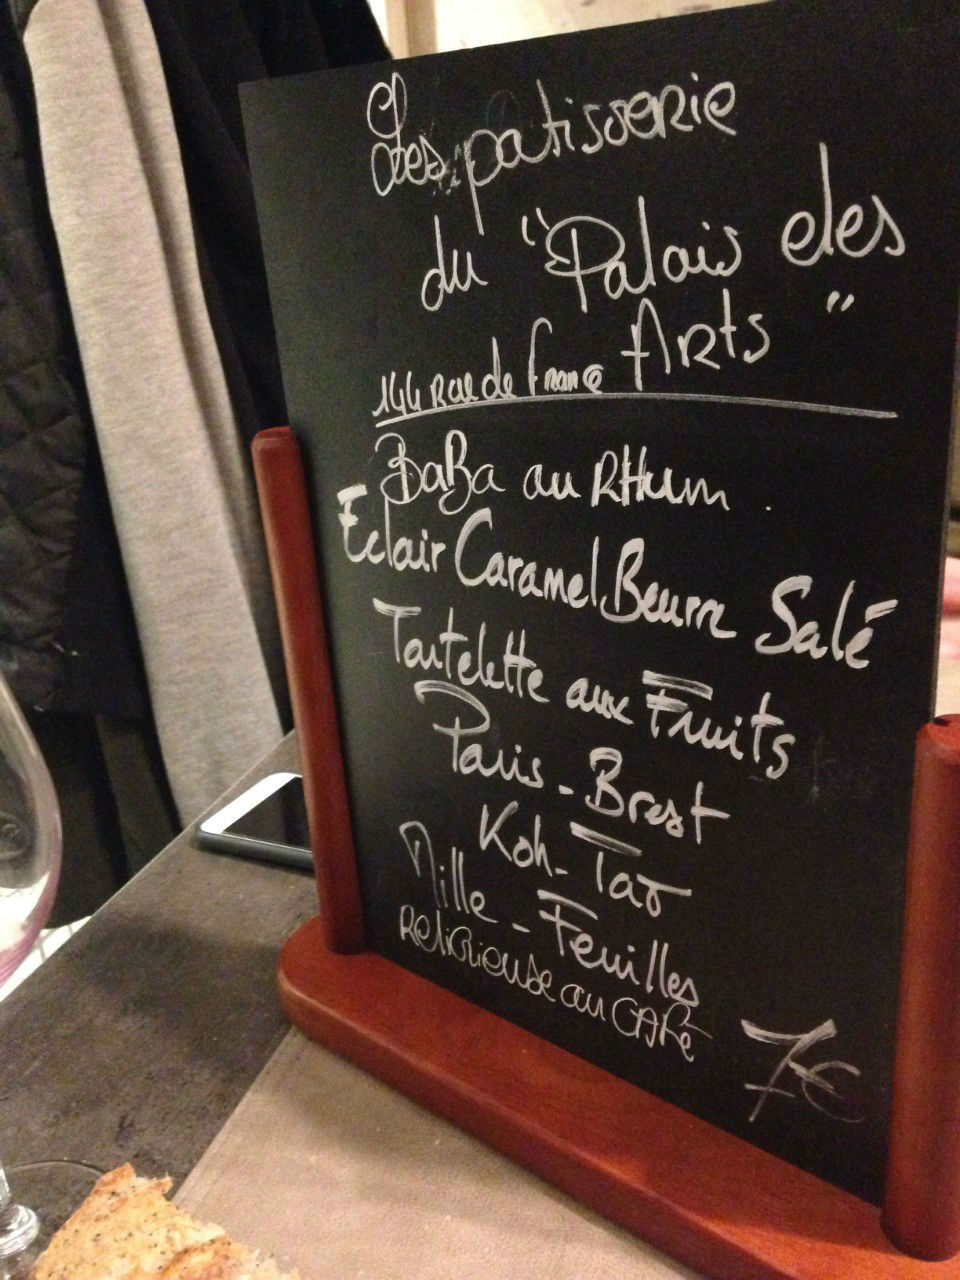 Les patisserie
du "Palais des
Arts"
144 Rue de France
BaBa au RHum.
Eclair Caramel Beurre Salé
Tartelette aux Fruits
Paris - Brest
Koh - Tao
Mille - Feuilles
Religieuse au CAFé
7€